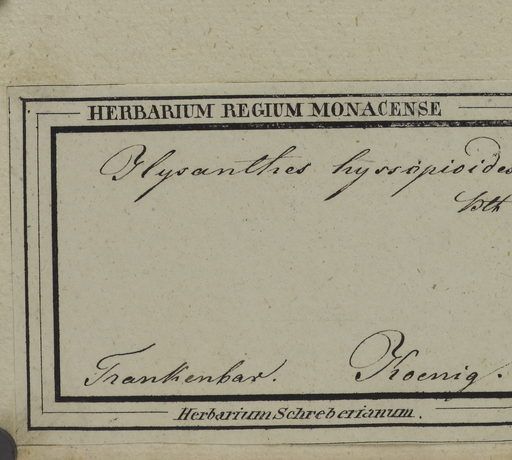 HERBARIUM REGIUM MONACENSE
Ilysanthes hyssopioides
Bth
Trankenbar. Koenig.
Herbarium Schreberianum.